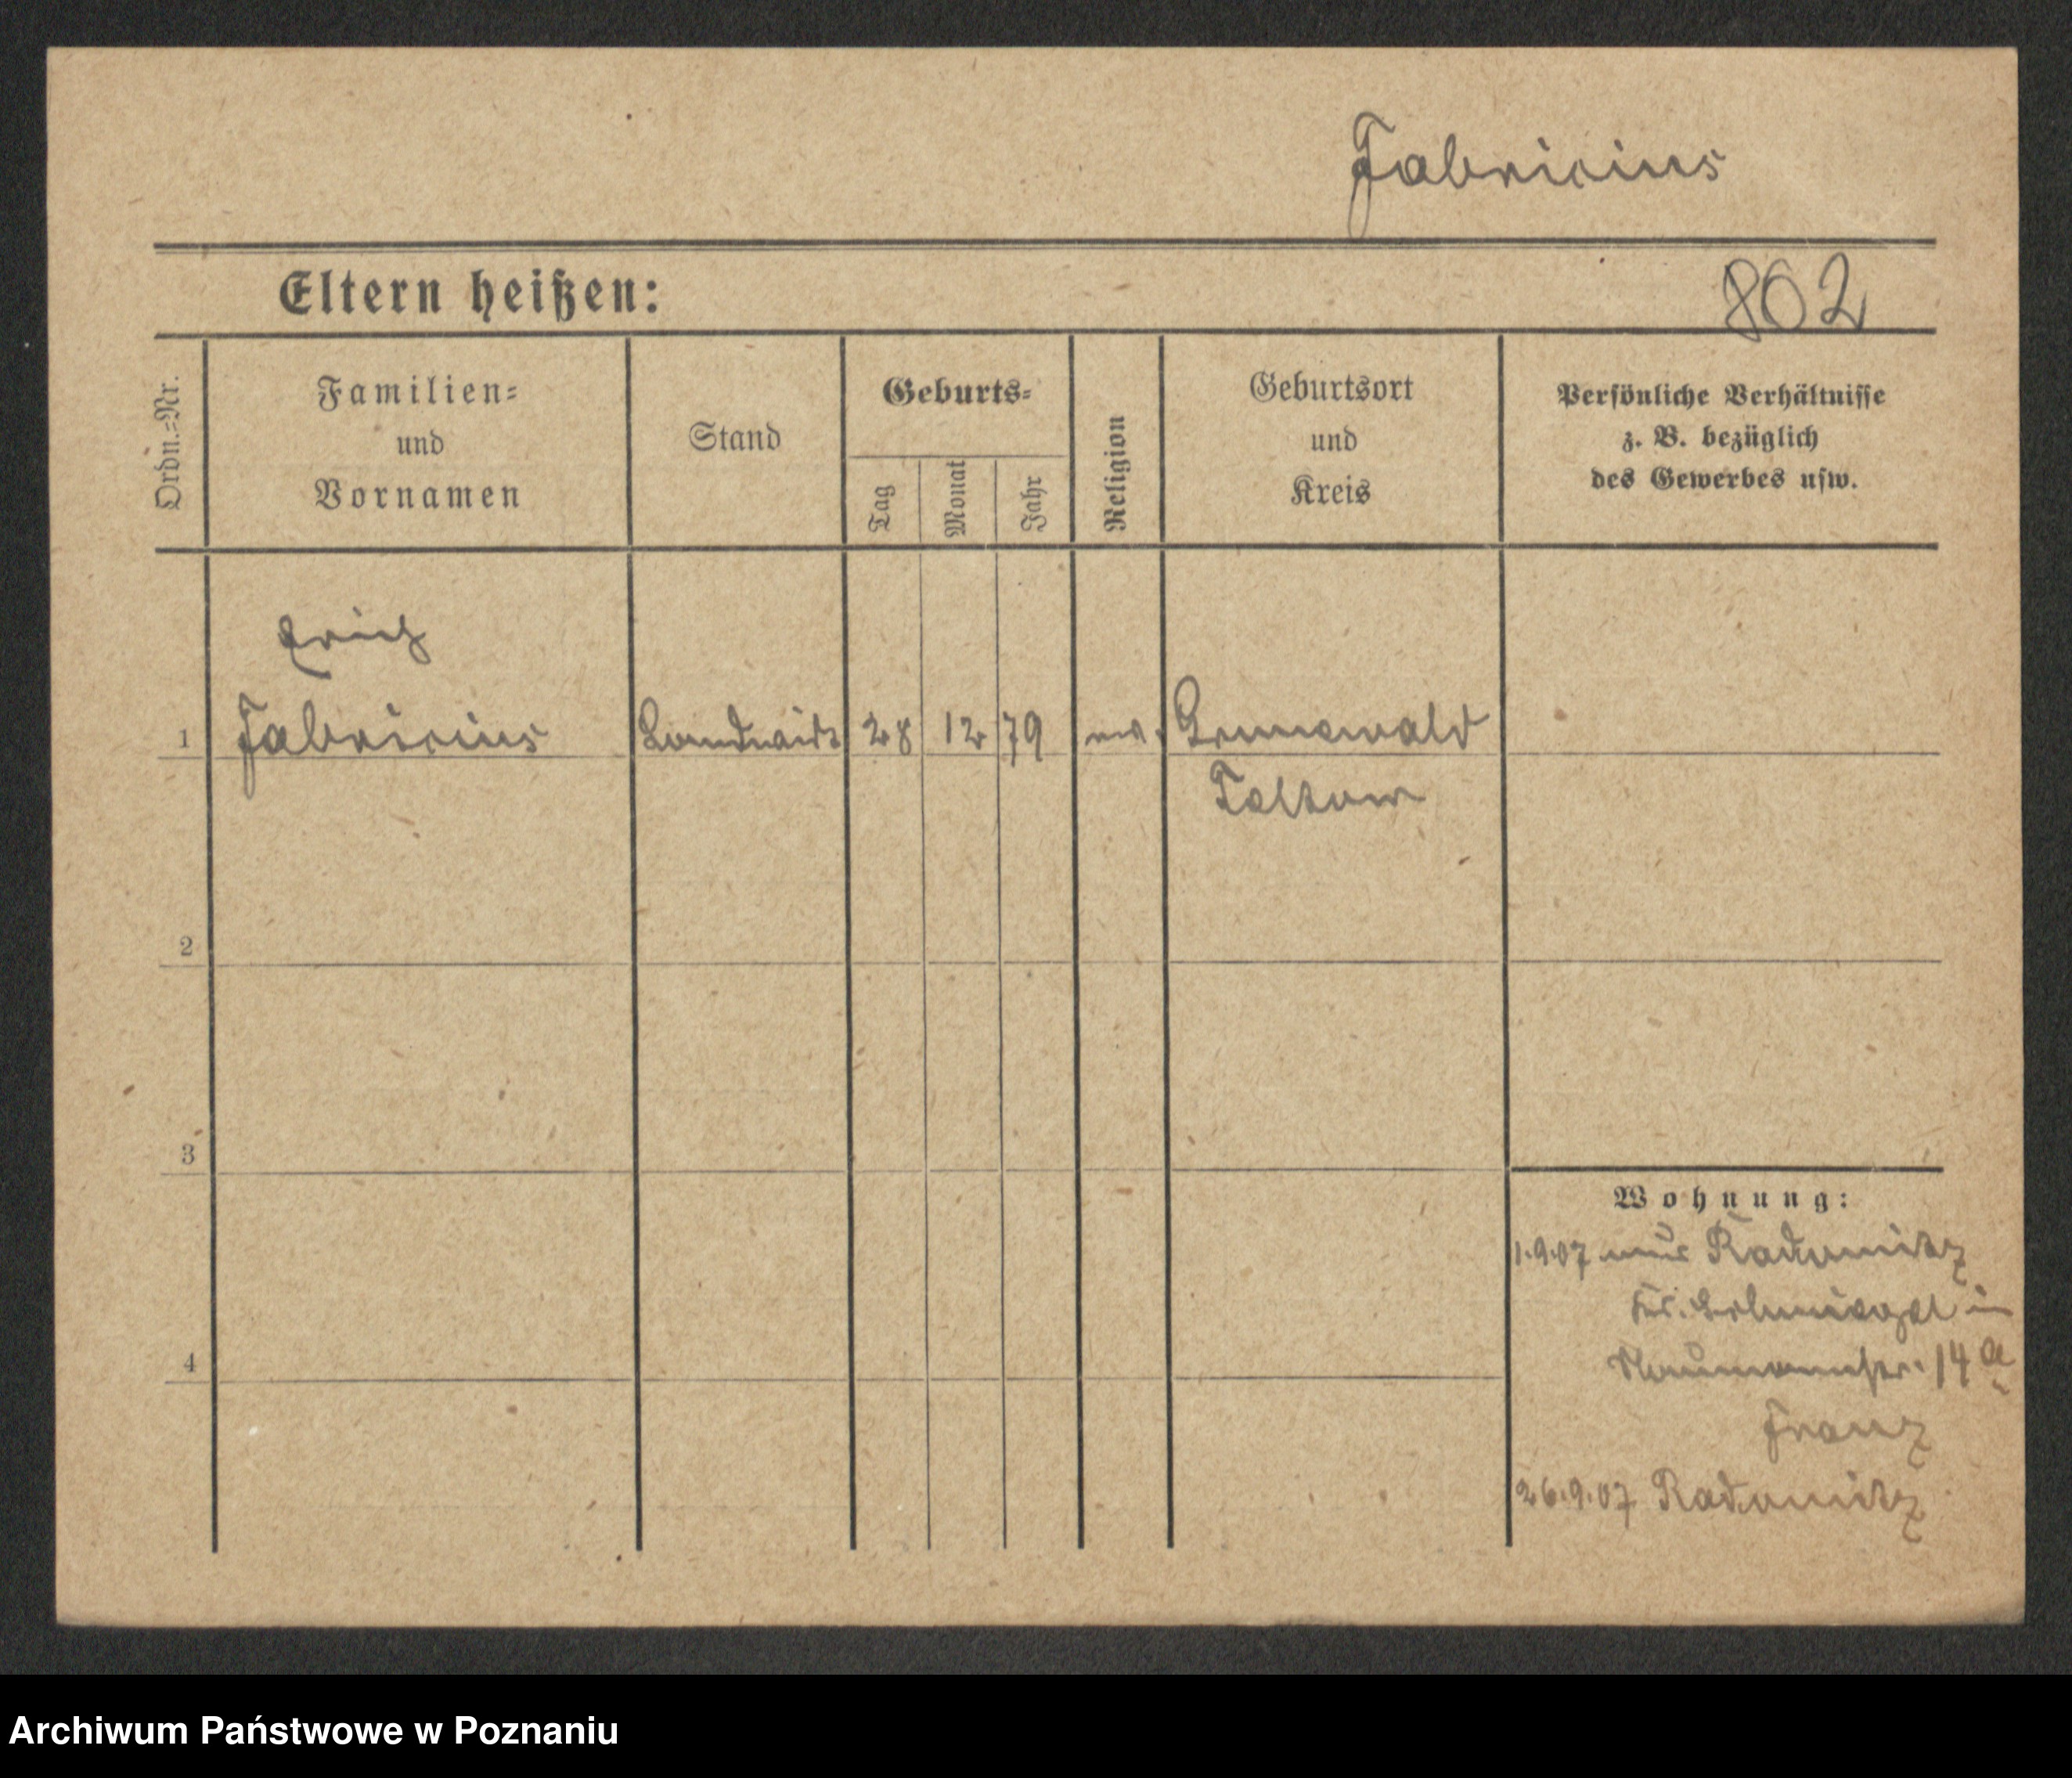 Fabricius
Eltern heißen:
862
Ordn.=Nr.
Familien=
und
Vornamen
Stand
Geburts=
Tag
Monat
Jahr
Religion
Geburtsort
und
Kreis
Persönliche Verhältnisse
z. B. bezüglich
des Gewerbes usw.
Erich
1 Fabricius Landwirt 28 12 79 Grunewald
Teltow
2
3
4
Wohnung:
1.9.07 aus Radomitz
Kr. in
Naumannstr. 14a
Franz
26.9.07 Radomitz
Archiwum Państwowe w Poznaniu